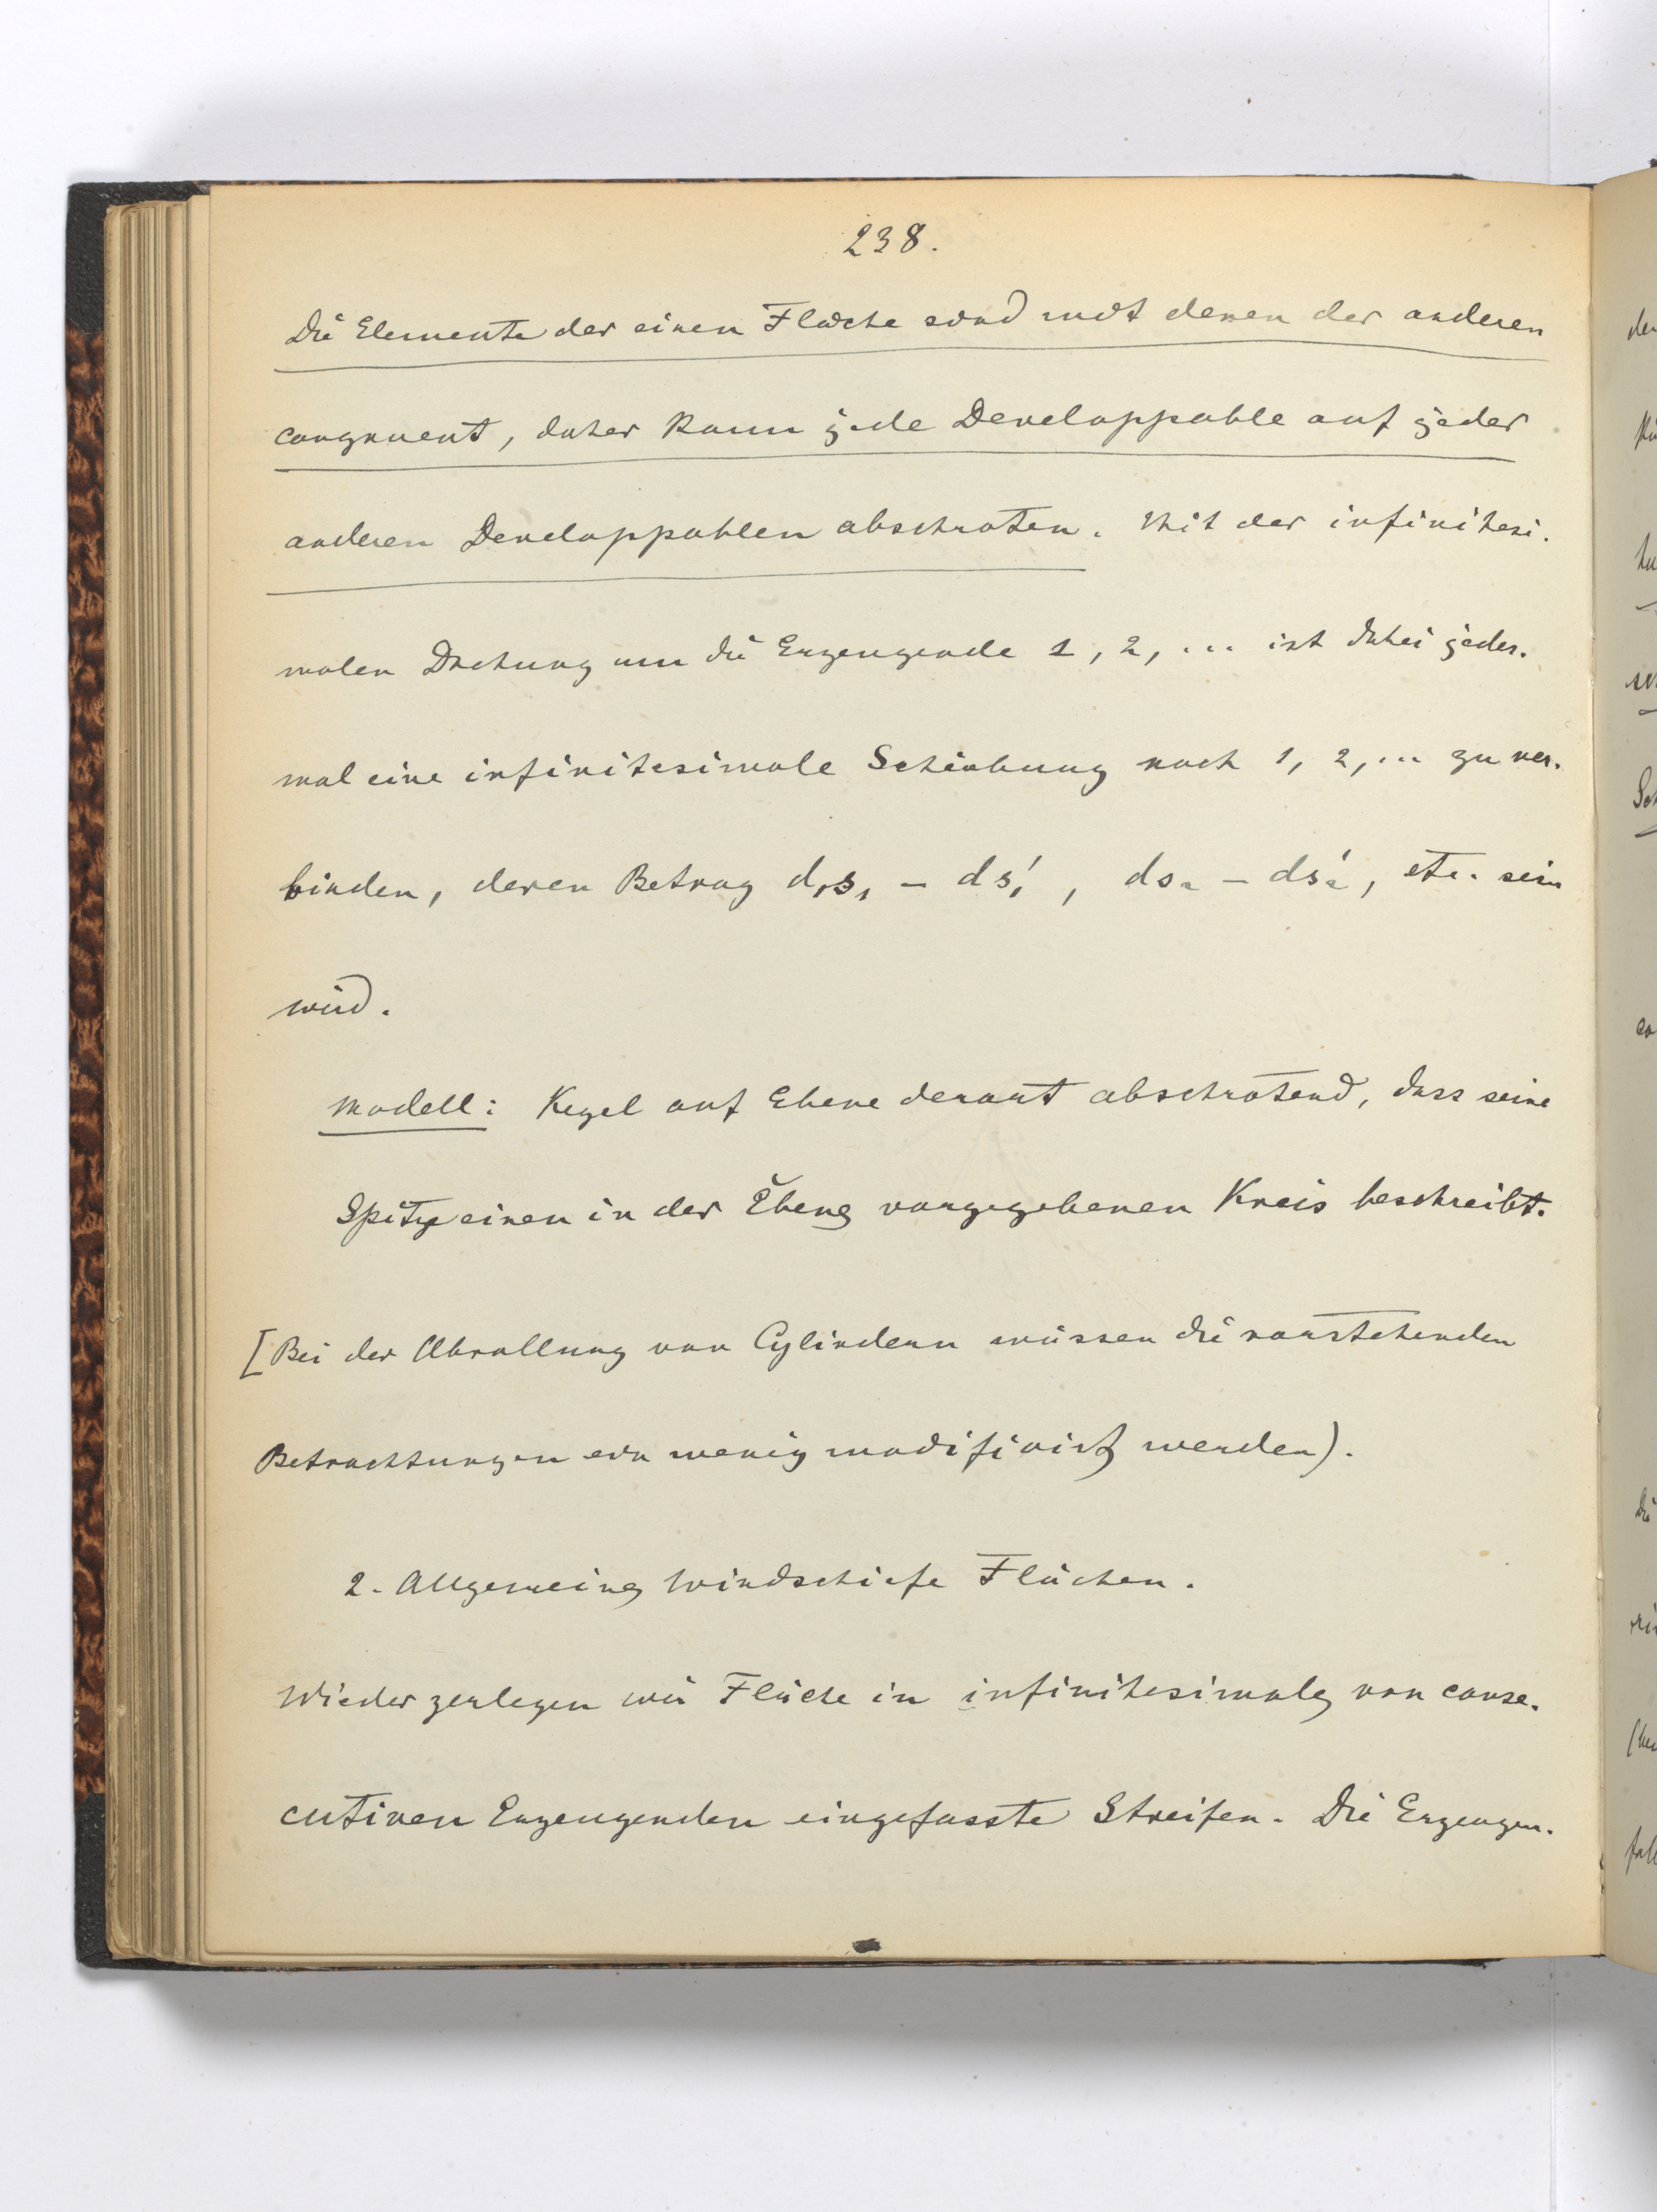 238.
Die Elemente der einen Fläche sind mit denen der anderen
congruent, daher kann jede Developpable auf jeder
anderen Developpablen abschroten. Mit der infinitesi-
malen Drehung um die Erzeugende 1, 2, ... ist dabei jedes-
mal eine infinitesimale Schiebung nach 1, 2, ... zu ver-
binden, deren Betrag ds₁ - ds₁', ds₂ - ds₂', etc. sein
wird.
Modell: Kegel auf Ebene derart abschrotend, dass seine
Spitze einen in der Ebene vorgegebenen Kreis beschreibt.
[Bei der Abrollung von Cylindern müssen die vorstehenden
Betrachtungen ein wenig modificirt werden).
2. Allgemeine windschiefe Flächen.
Wieder zerlegen wir Fläche in infinitesimale von conse-
cutiven Erzeugenden eingefasste Streifen. Die Erzeugen-